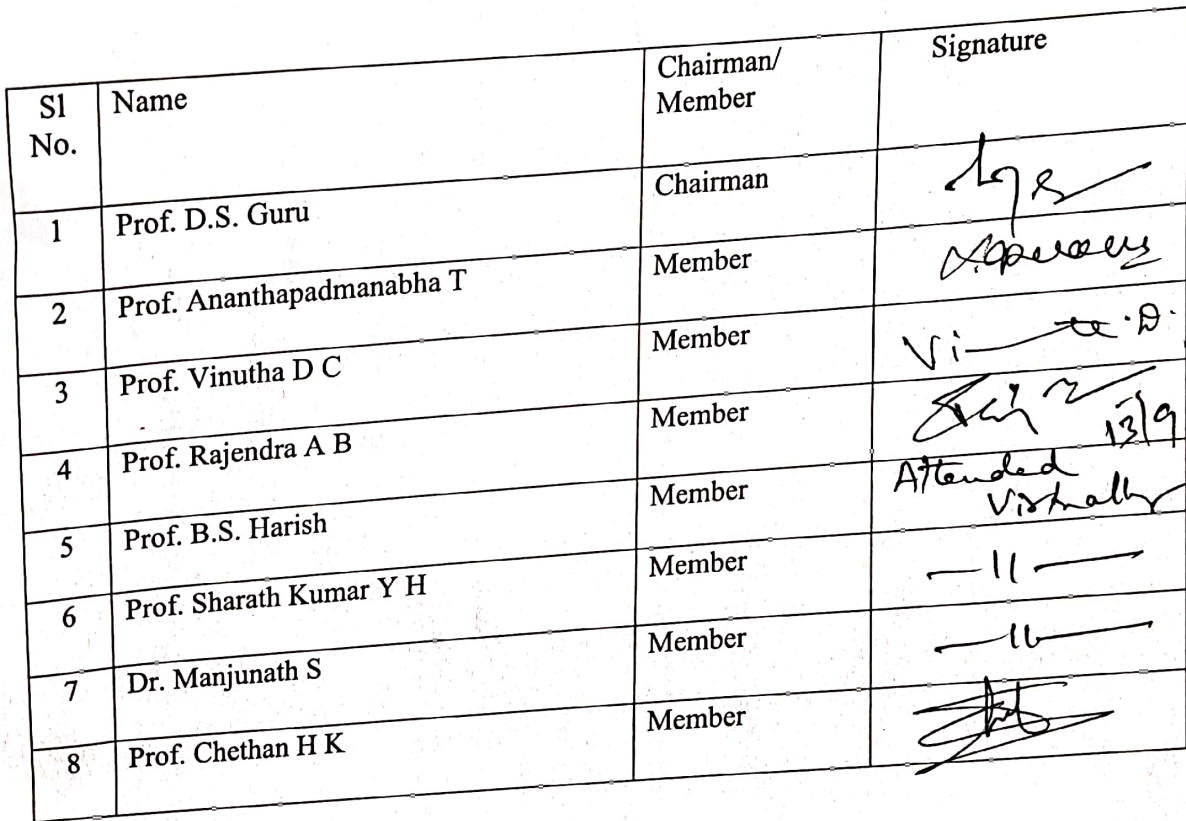 Sl No. Name Chairman/ Member Signature
1 Prof. D.S. Guru Chairman
2 Prof. Ananthapadmanabha T Member
3 Prof. Vinutha D C Member Vi D.
4 Prof. Rajendra A B Member 13/9
5 Prof. B.S. Harish Member Attended Virtually
6 Prof. Sharath Kumar Y H Member —11—
7 Dr. Manjunath S Member —11—
8 Prof. Chethan H K Member